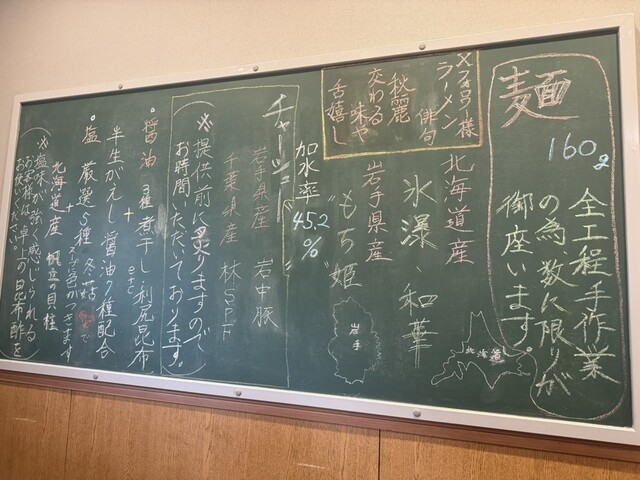 麺
160g
全工程手作業
の為、数に限りが
御座います。
Xフォロワー様
ラーメン
俳句
秋麗
交わる味や
舌嬉し
北海道産
氷瀑、和華
岩手県産
"もち姫"
北海道
岩手
加水率
45.2
%
チャーシュー
岩手県産 岩中豚
千葉県産 林SPF
(※提供前に炙りますので
お時間いただいております。)
醤油 3種煮干し 利尻昆布
etc
+
半生がえし 醤油7種配合
塩 厳選5種 冬菇
スープに色がつきます
+
北海道産 帆立の貝柱
(※塩味が強く感じられる
お客様は卓上の昆布酢を
お使いください)